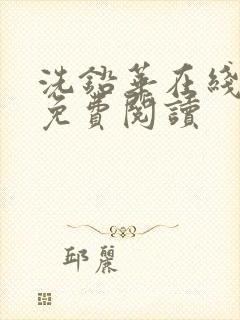 洗鉛華在綫
免費閱讀
邱麗